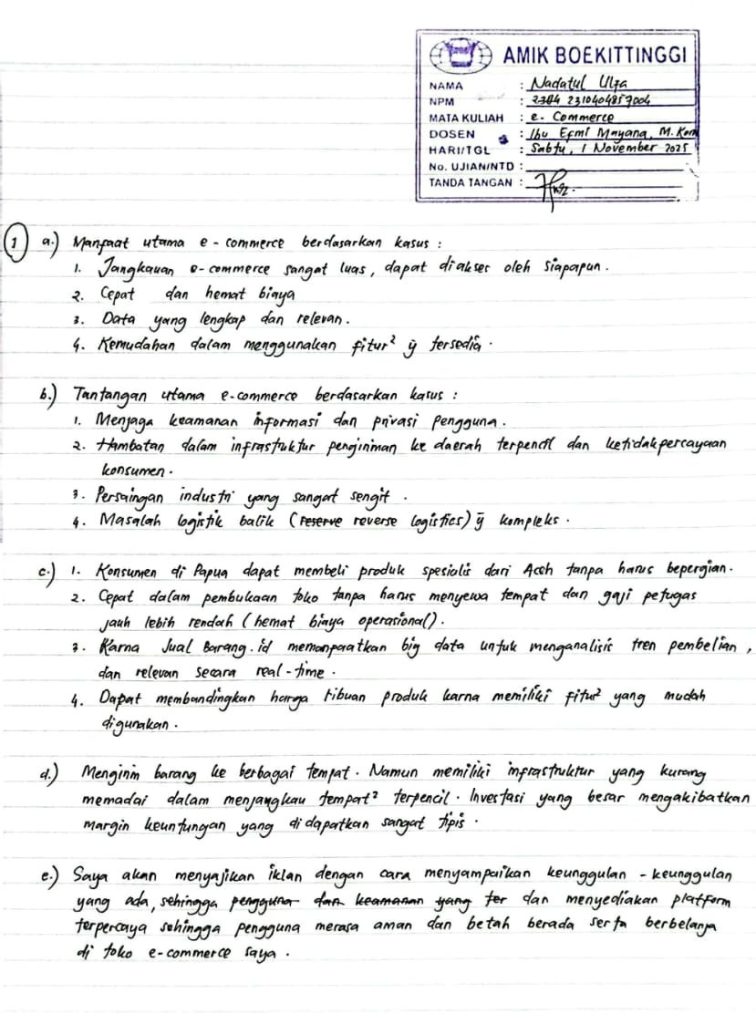 AMIK BOEKITTINGGI
NAMA : Nadatul Ulfa
NPM : 2304 2310404857004
MATA KULIAH : e. Commerce
DOSEN : Ibu Efmi Mayana, M.Kom
HARI/TGL : Sabtu, 1 November 2025
No. UJIAN/NTD :
TANDA TANGAN :
1 a.) Manfaat utama e-commerce berdasarkan kasus :
1. Jangkauan e-commerce sangat luas, dapat diakses oleh siapapun.
2. Cepat dan hemat biaya
3. Data yang lengkap dan relevan.
4. Kemudahan dalam menggunakan fitur² ÿ tersedia.
b.) Tantangan utama e-commerce berdasarkan kasus :
1. Menjaga keamanan informasi dan privasi pengguna.
2. Hambatan dalam infrastruktur pengiriman ke daerah terpencil dan ketidakpercayaan
konsumen.
3. Persaingan industri yang sangat sengit.
4. Masalah logistik balik (reserve reverse logistics) ÿ kompleks.
c.) 1. Konsumen di Papua dapat membeli produk spesialis dari Aceh tanpa harus bepergian.
2. Cepat dalam pembukaan toko tanpa harus menyewa tempat dan gaji petugas
jauh lebih rendah (hemat biaya operasional).
3. Karna Jual Barang.id memanpaatkan big data untuk menganalisis tren pembelian,
dan relevan secara real-time.
4. Dapat membandingkan harga ribuan produk karna memiliki fitur² yang mudah
digunakan.
d.) Mengirim barang ke berbagai tempat. Namun memiliki infrastruktur yang kurang
memadai dalam menjangkau tempat² terpencil. Investasi yang besar mengakibatkan
margin keuntungan yang didapatkan sangat tipis.
e.) Saya akan menyajikan iklan dengan cara menyampaikan keunggulan-keunggulan
yang ada, sehingga pengguna dan keamanan yang ter dan menyediakan platform
terpercaya sehingga pengguna merasa aman dan betah berada serta berbelanja
di toko e-commerce saya.